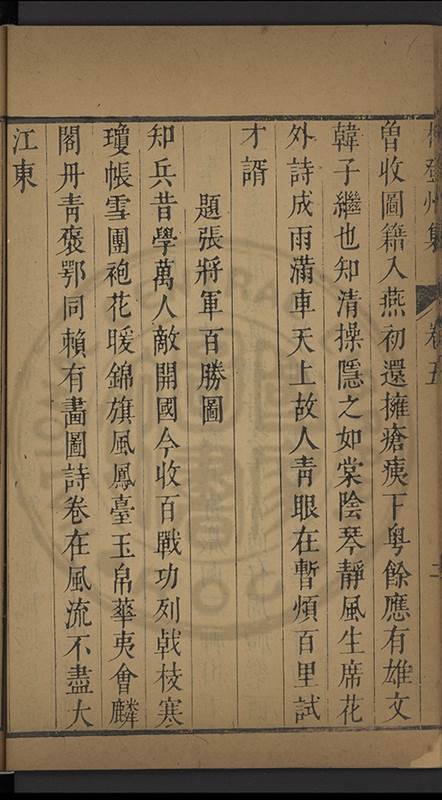 登州集 卷五
曽收圖籍入燕初還擁瘡痍下粤餘應有雄文
韓子繼也知清操隱之如棠陰琴靜風生席花
外詩成雨滿車天上故人青眼在暫煩百里試
才諝
題張將軍百勝圖
知兵昔學萬人敵開國今收百戰功列戟枝寒
瓊帳雪團袍花暖錦旗風鳳臺玉帛華夷會麟
閣丹青褒鄂同賴有畵圖詩卷在風流不盡大
江東